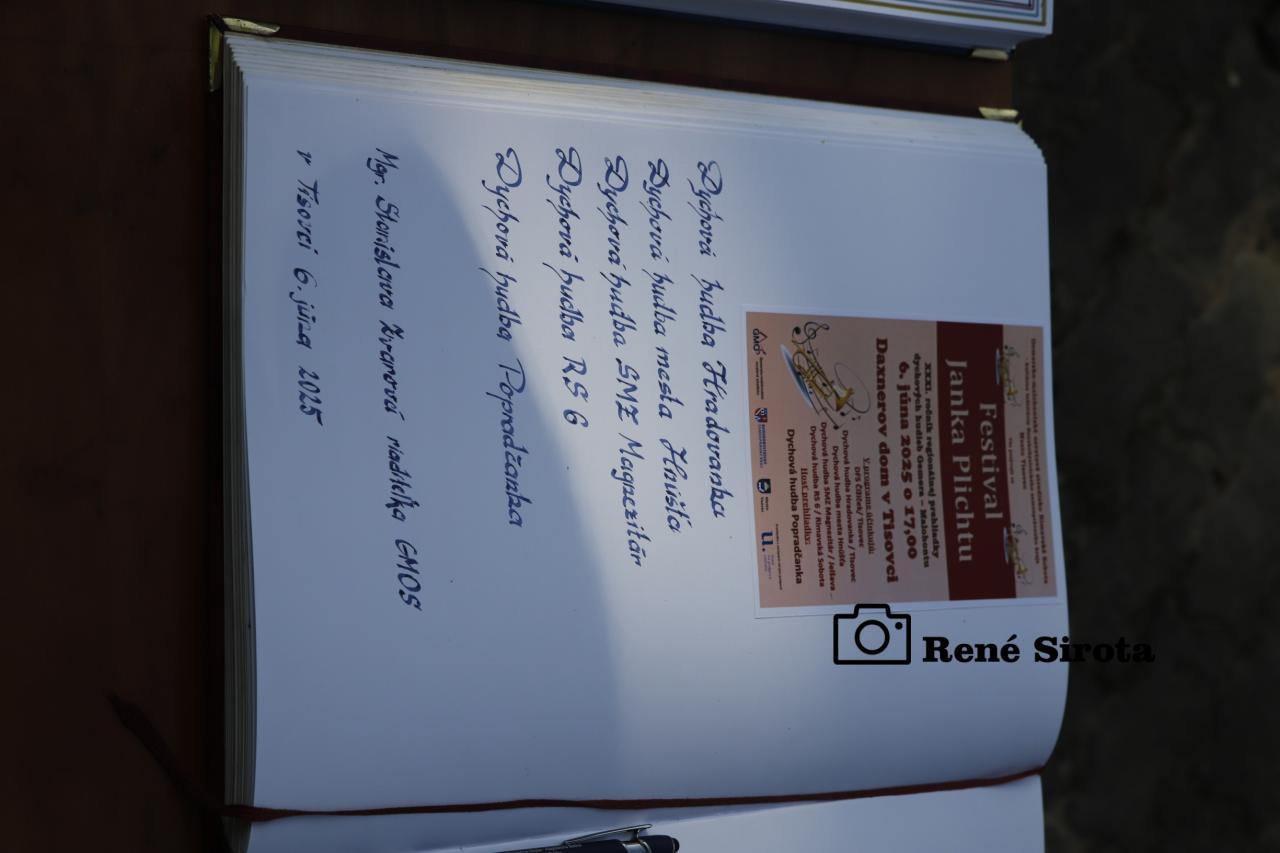 Gemersko-malohontské osvetové stredisko Rimavská Sobota
Mesto Tisovec
Festival
Janka Plichtu
XXXI. ročník regionálnej prehliadky
dychových hudieb Gemera – Malohontu
6. júna 2025 o 17,00
Daxnerov dom v Tisovci
V programe účinkujú:
DFS Čížiček/ Tisovec
Dychová hudba Hradovanka / Tisovec
Dychová hudba mesta Hnúšťa
Dychová hudba SMZ Magnezitár / Jelšava
Dychová hudba RS 6 / Rimavská Sobota
Hosť prehliadky:
Dychová hudba Popradčanka
GMOS
u.
Dychová hudba Hradovanka
Dychová hudba mesta Hnúšťa
Dychová hudba SMZ Magnezitár
Dychová hudba RS 6
Dychová hudba Popradčanka
Mgr. Stanislava Zvarová riaditeľka GMOS
v Tisovci 6. júna 2025
René Sirota